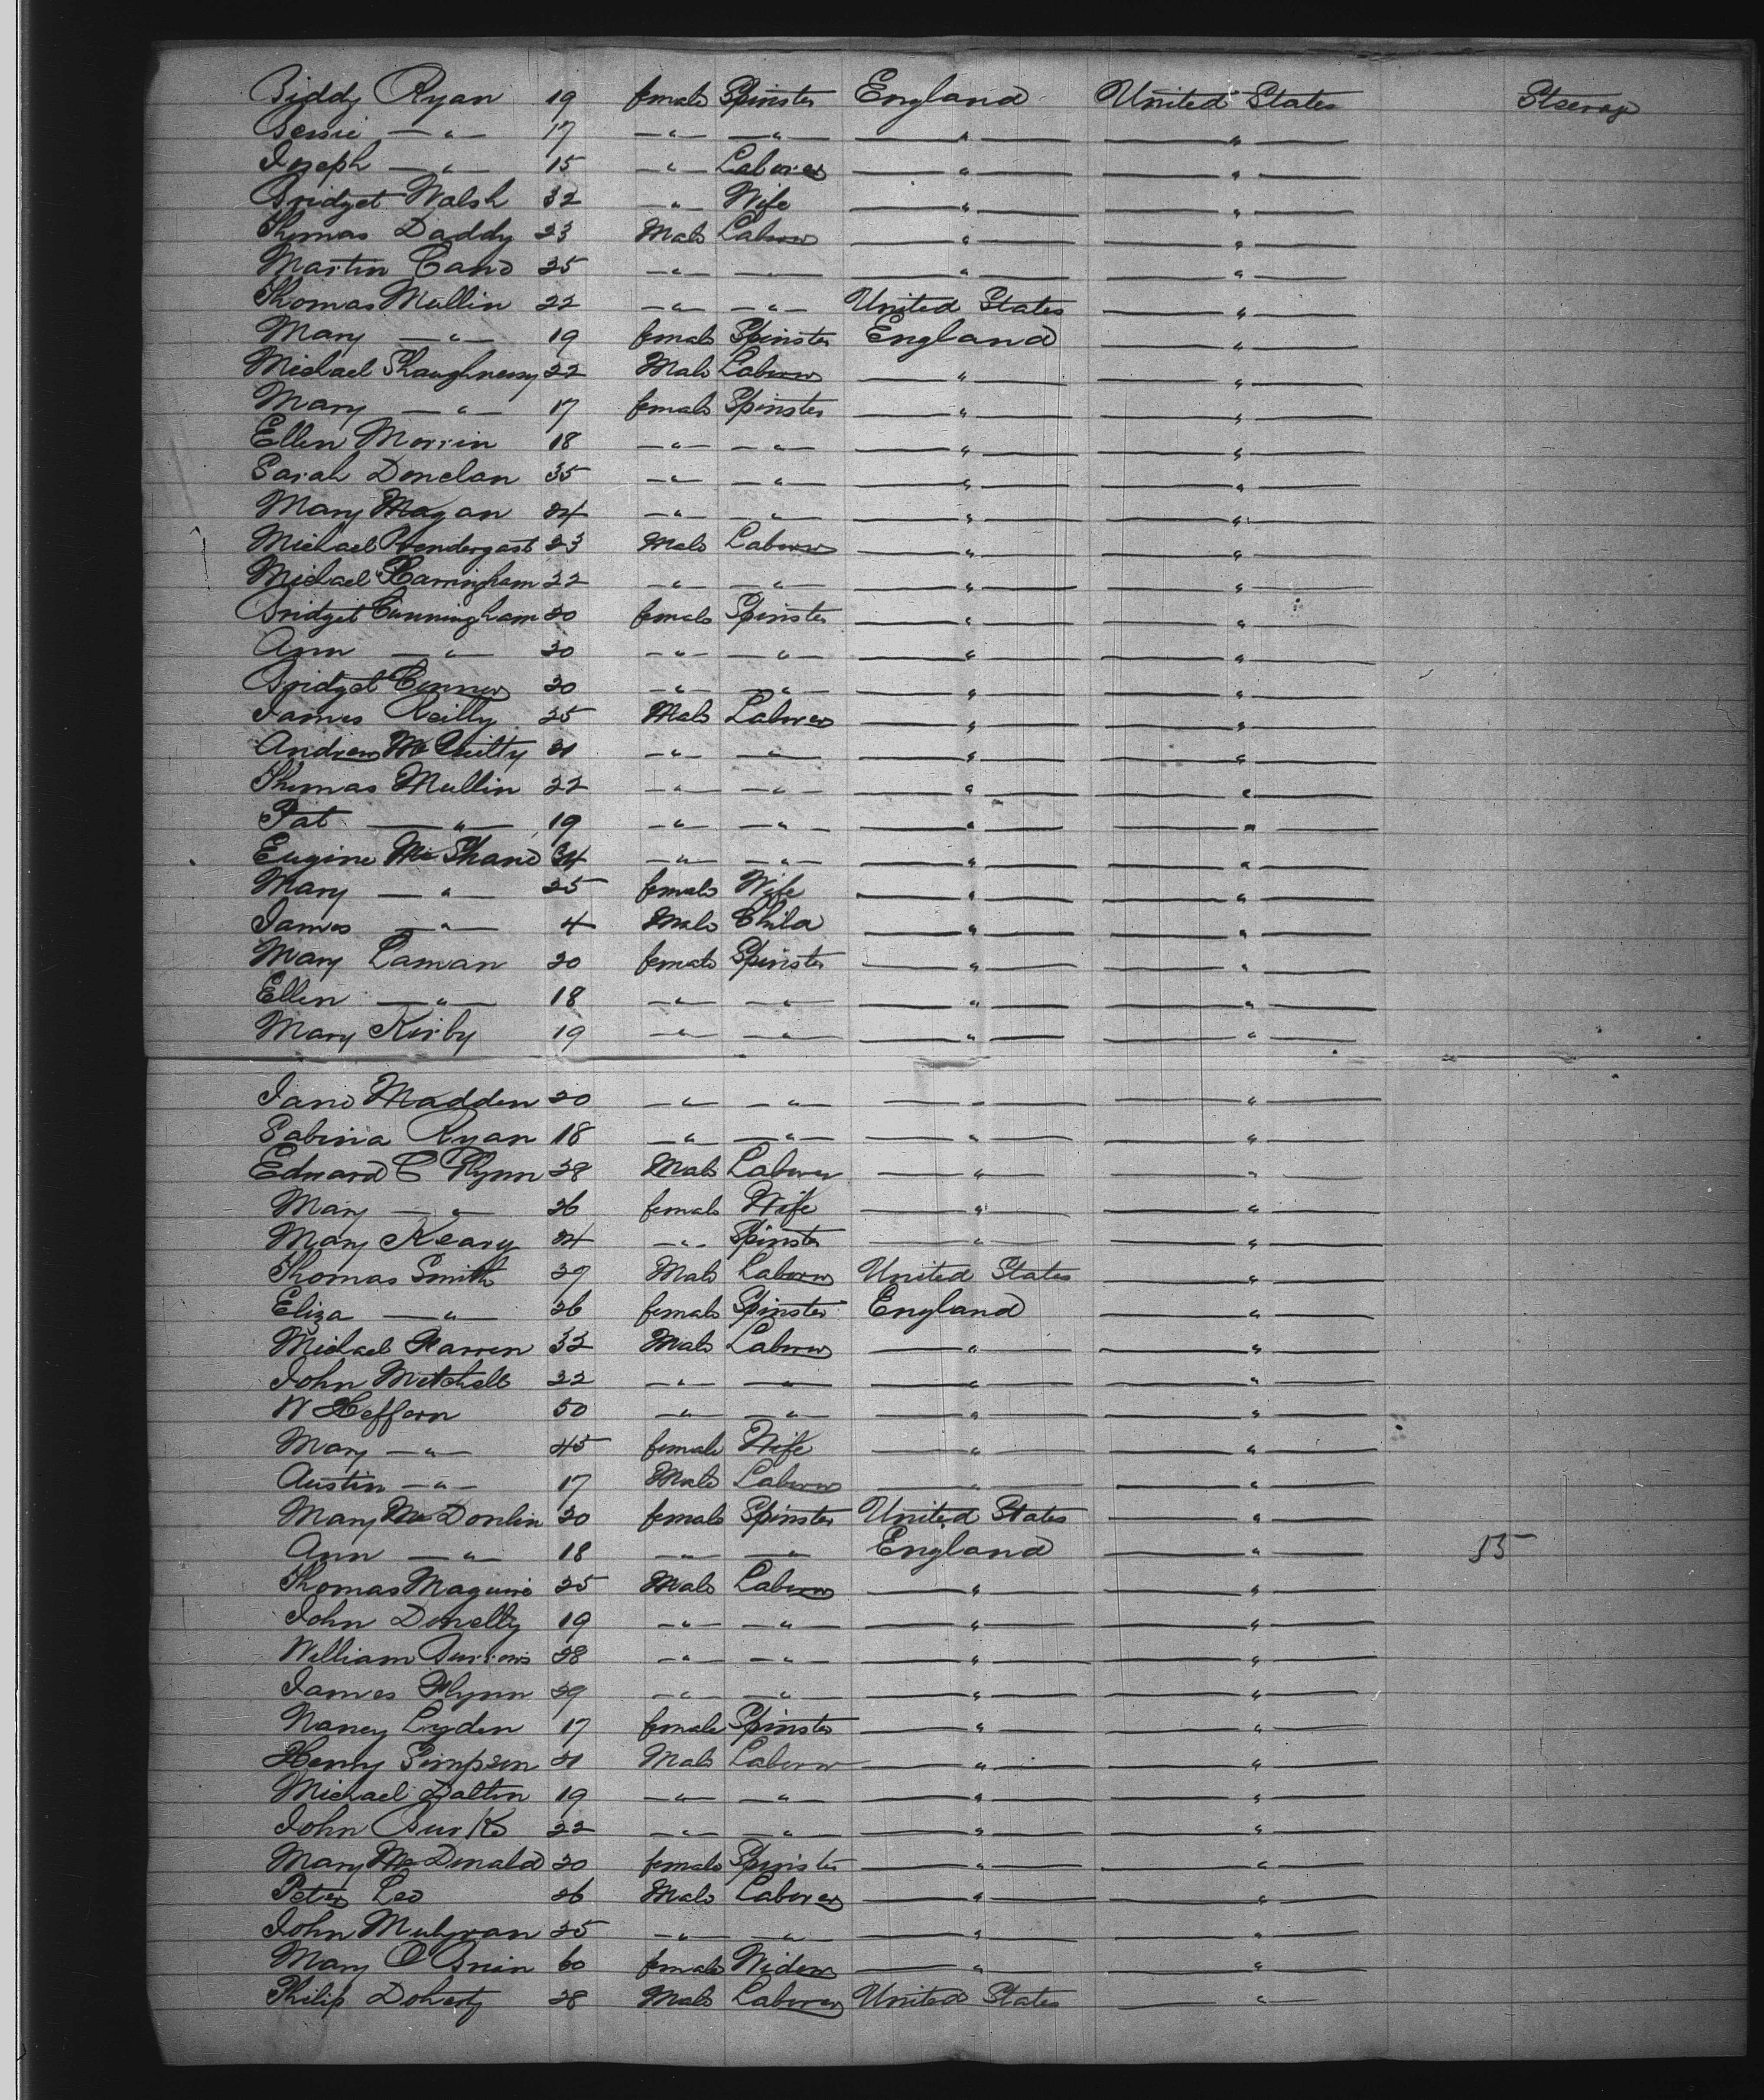 Biddy Ryan 19 female Spinster England United States Steerage
Bessie — " — 17 — " — — " — — " — — " —
Joseph — " — 15 — " — Laborer — " — — " —
Bridget Walsh 32 — " — Wife — " — — " —
Thomas Daddy 23 Male Laborer — " — — " —
Martin Cane 25 — " — — " — — " — — " —
Thomas Mullin 22 — " — — " — United States — " —
Mary — " — 19 female Spinster England — " —
Michael Shaughnessy 22 Male Laborer — " — — " —
Mary — " — 17 female Spinster — " — — " —
Ellen Morrin 18 — " — — " — — " — — " —
Sarah Donelan 35 — " — — " — — " — — " —
Mary Magan 24 — " — — " — — " — — " —
Michael Prendergast 23 Male Laborer — " — — " —
Michael Harringham 22 — " — — " — — " — — " —
Bridget Cunningham 20 female Spinster — " — — " —
Ann — " — 20 — " — — " — — " — — " —
Bridget Connor 20 — " — — " — — " — — " —
James Reilly 25 Male Laborer — " — — " —
Andrew McQuilty 21 — " — — " — — " — — " —
Thomas Mullin 22 — " — — " — — " — — " —
Pat — " — 19 — " — — " — — " — — " —
Eugine McShane 34 — " — — " — — " — — " —
Mary — " — 25 female Wife — " — — " —
James — " — 4 Male Child — " — — " —
Mary Laman 20 female Spinster — " — — " —
Ellen — " — 18 — " — — " — — " — — " —
Mary Kirby 19 — " — — " — — " — — " —
Jane Madden 20 — " — — " — — " — — " —
Sabina Ryan 18 — " — — " — — " — — " —
Edward C Flynn 28 Male Laborer — " — — " —
Mary — " — 26 female Wife — " — — " —
Mary Keary 24 — " — Spinster — " — — " —
Thomas Smith 27 Male Laborer United States — " —
Eliza — " — 26 female Spinster England — " —
Michael Farren 32 Male Laborer — " — — " —
John Mitchell 22 — " — — " — — " — — " —
W Heffern 50 — " — — " — — " — — " —
Mary — " — 45 female Wife — " — — " —
Austin — " — 17 Male Laborer — " — — " —
Mary McDonlin 20 female Spinster United States — " —
Ann — " — 18 — " — — " — England — " — 55
Thomas Maguire 25 Male Laborer — " — — " —
John Donelly 19 — " — — " — — " — — " —
William Burrows 28 — " — — " — — " — — " —
James Flynn 29 — " — — " — — " — — " —
Nancy Lyden 17 female Spinster — " — — " —
Henry Simpson 21 Male Laborer — " — — " —
Michael Dalton 19 — " — — " — — " — — " —
John Burke 22 — " — — " — — " — — " —
Mary McDonald 20 female Spinster — " — — " —
Peter Leo 26 Male Laborer — " — — " —
John Mulvran 25 — " — — " — — " — — " —
Mary O Brien 60 female Widow — " — — " —
Philip Doherty 28 Male Laborer United States — " —